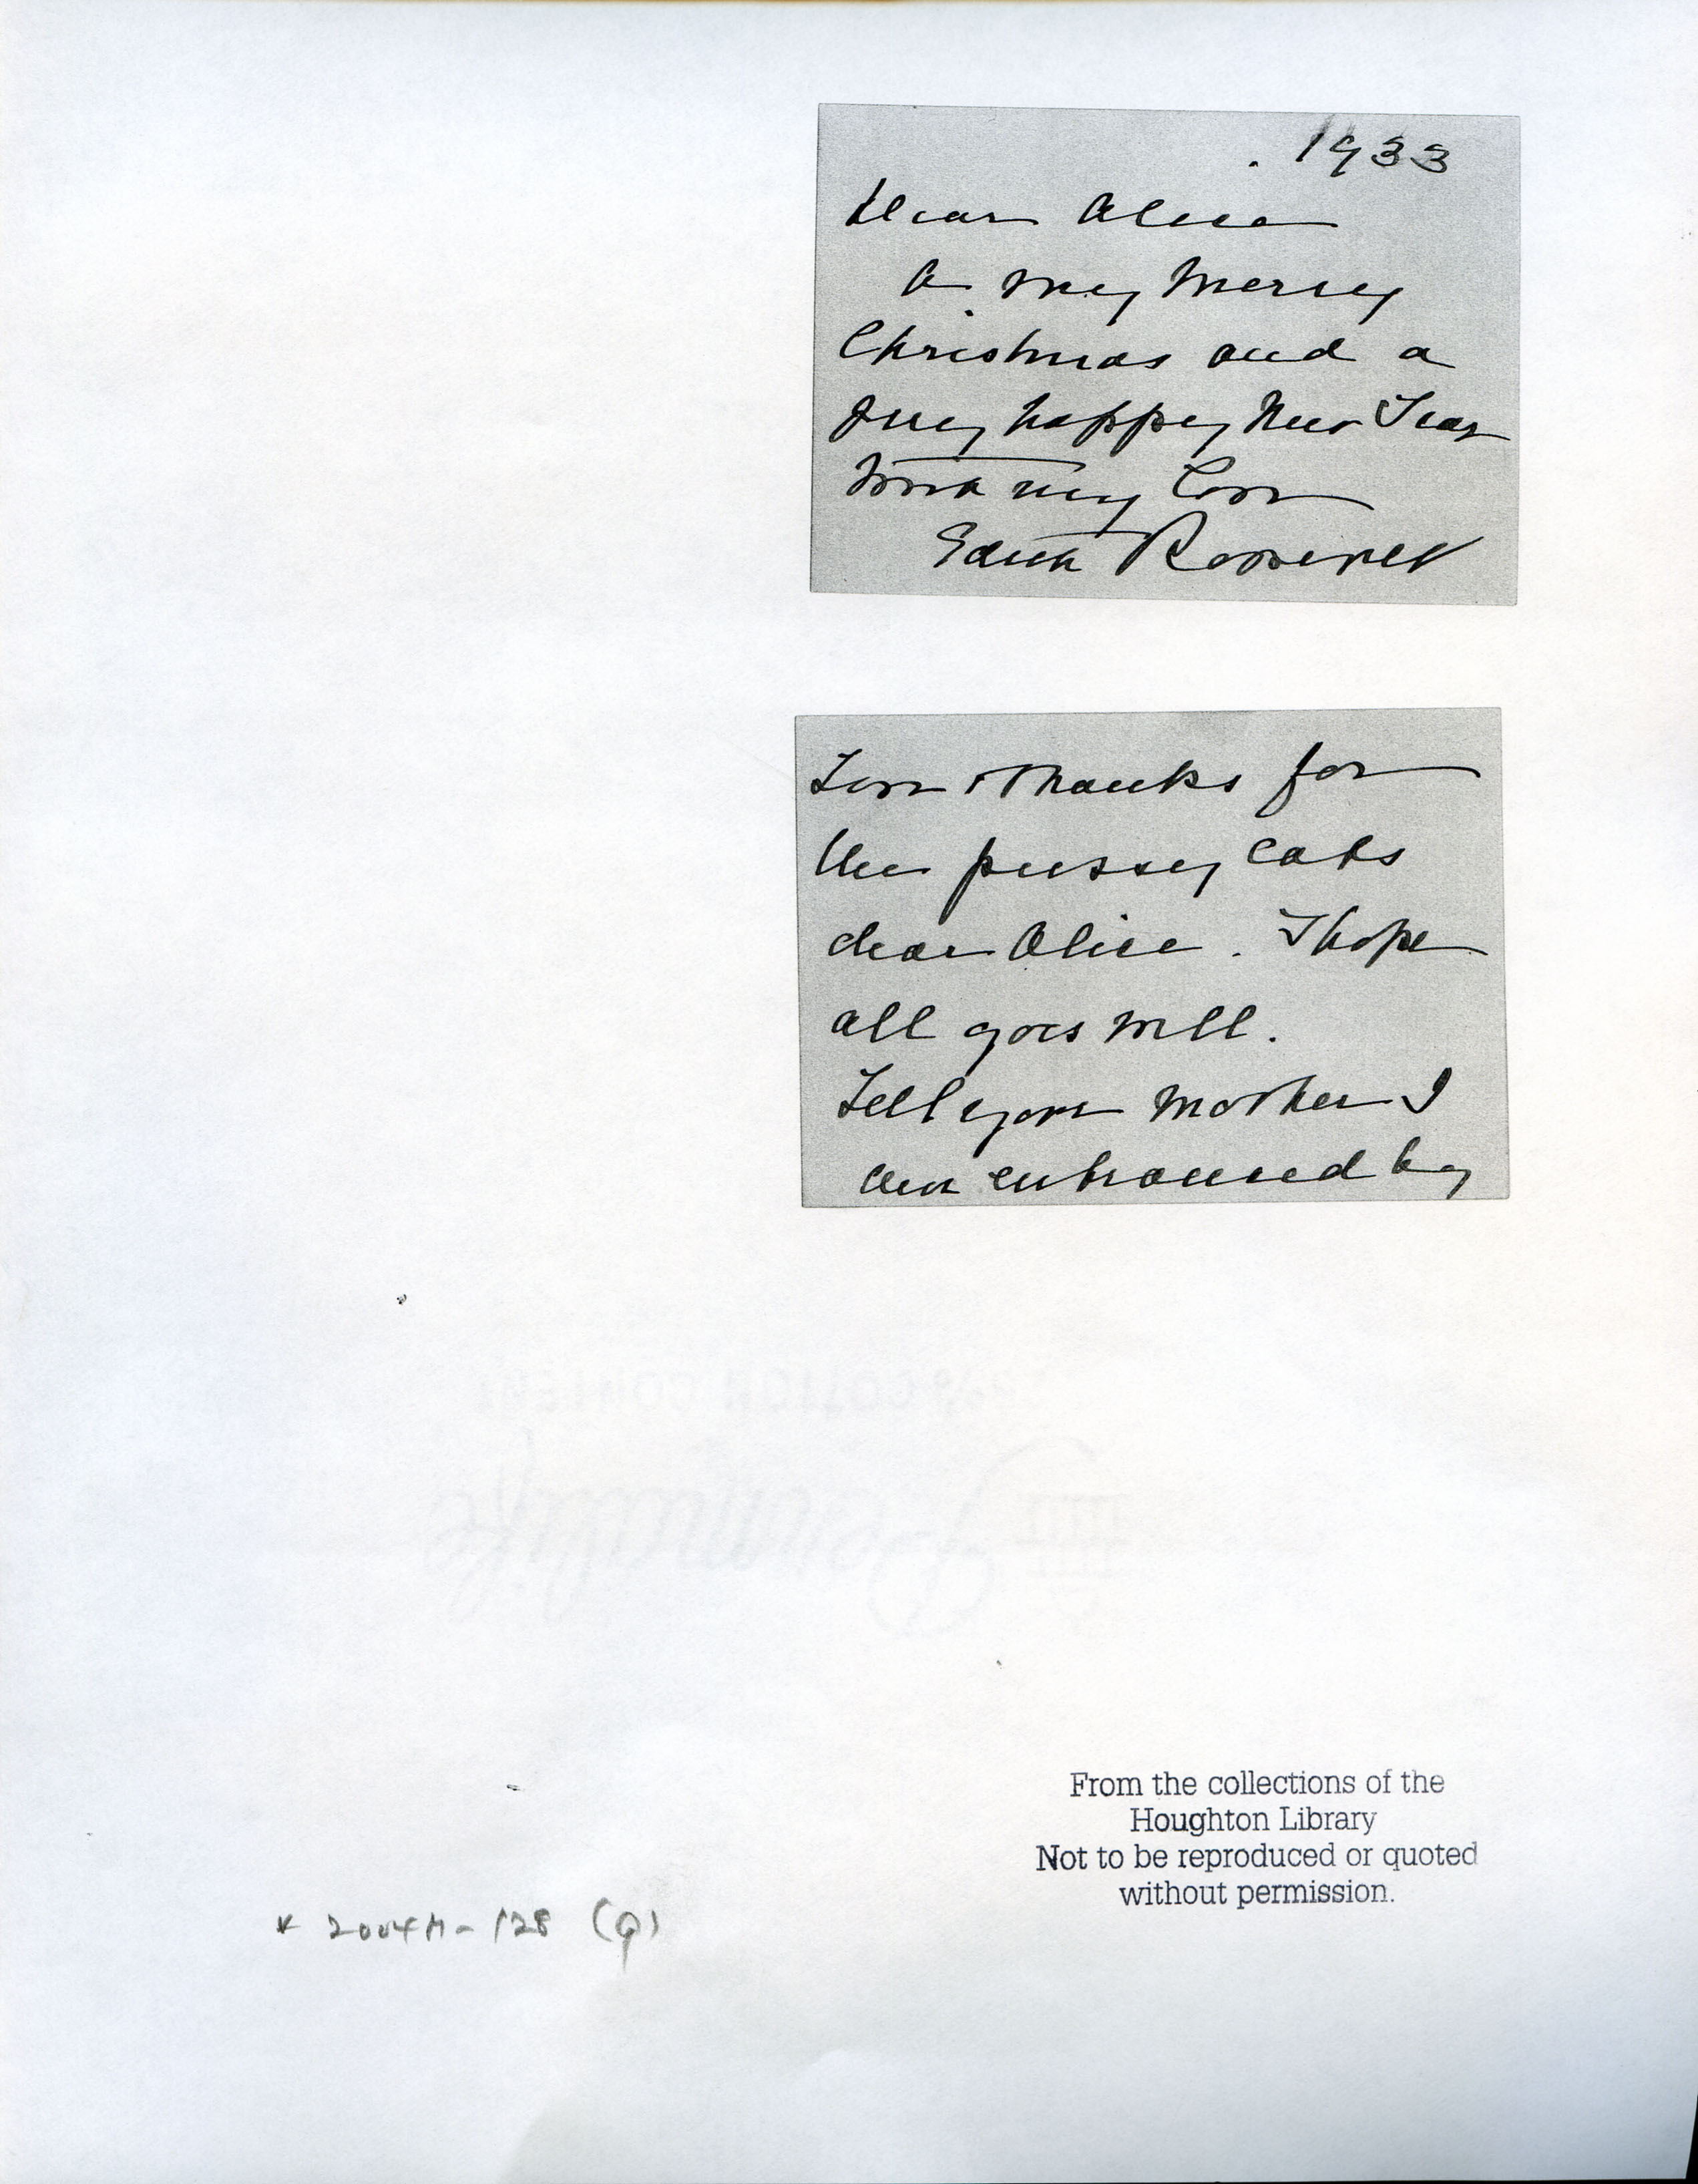 . 1933
Dear Alice
A very Merry
Christmas and a
very happy New Year
With my love
Edith Roosevelt
Love & thanks for
the pussy cats
dear Alice. I hope
all goes well.
Tell your Mother I
am entranced by
100% COTTON CONTENT
Permalife
From the collections of the
Houghton Library
Not to be reproduced or quoted
without permission.
* 2004M-128 (9)